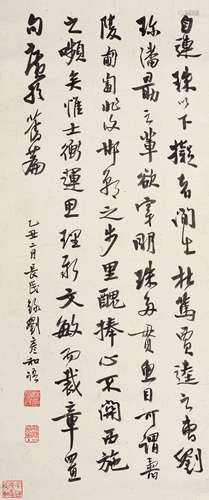 自連珠以下擬者間出杜篤賈逵之曹劉
珍潘勗之輩欲穿明珠多貫魚目可謂壽
陵匍匐非復邯鄲之步里醜捧心不關西施
之嚬矣惟士衡運思理新文敏而裁章置
句廣於舊篇
乙丑二月長民錄劉彥和語